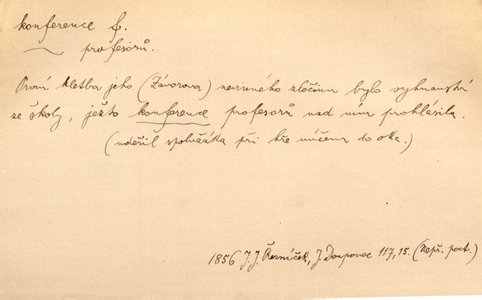 konference f.
profesorů.
První kletba jeho (Závorova) nevinného zločinu bylo vyhnanství
ze školy, ježto konference profesorů nad ním prohlásila.
(udeřil spolužáka při hře míčem do oka.)
1856 J. J. Řezníček, J. Doupovec 117,15. (Nepř. port.)